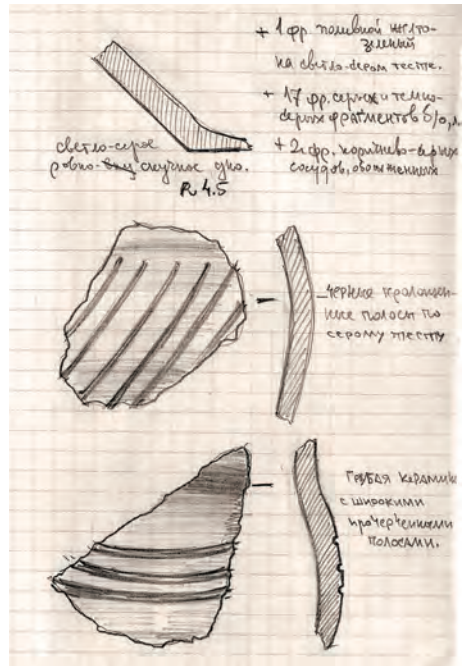 + 1 фр. поливной желто-
зеленый
на светло-сером тесте.
+ 17 фр. серых и темно-
серых фрагментов б/о, л.
+ 2 фр. коричнево-серых
сосудов,
светло-серое
ровно- скучное дно.
R 4.5
черные
полосы по
серому тесту
грубая керамика
с широкими
прочерченными
полосами.